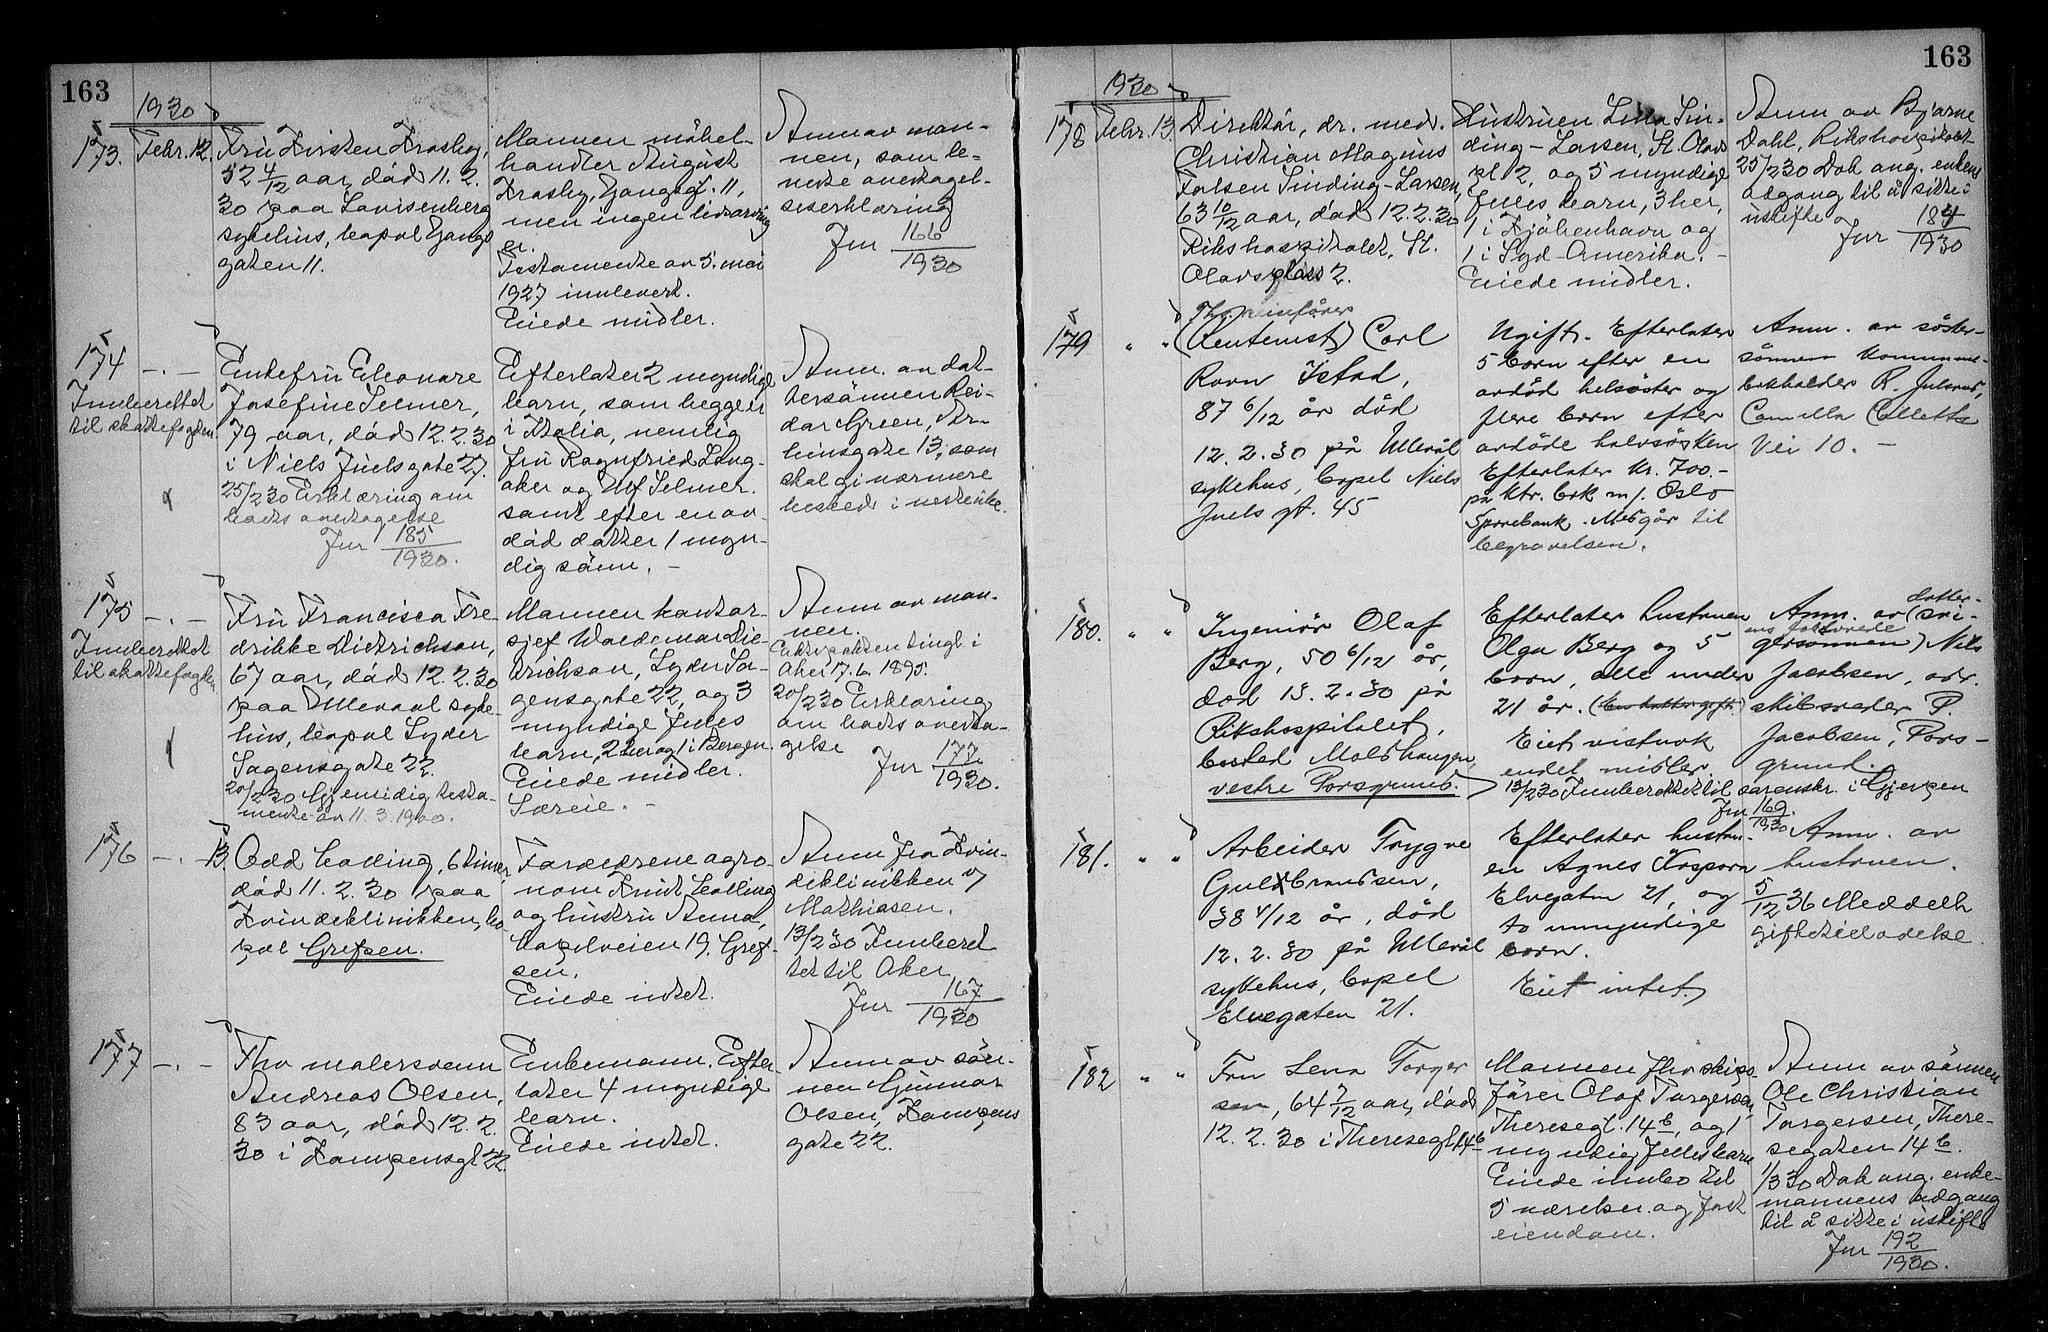 163
1930
173. Febr. 12. Fru Kirsten Krosby,
52 4/12 aar, död 11. 2.
30 paa Lovisenberg
sykehus, bopæl Gangs
gaten 11.
Mannen möbel-
handler August
Krosby, Gangsgt. 11,
men ingen livsarving
er.
Testamente av 5. mai
1927 innlevert.
Eiede midler.
Anm av man-
nen, som le-
verte overtagel-
seserklæring
Jnr 166/1930
174 -.- Enkefru Eleonore
Innberettet
til skattefogden.
Josefine Selmer,
79 aar, död 12. 2. 30
i Niels Juelsgate 27.
25/2 30 Erklæring om
boets overtagelse
Jnr 185/1930.
Efterlater 2 myndige
barn, som begge er
i Italia, nemlig
fru Ragnfried Lang-
aker og Ulf Selmer.
samt efter en av-
död datter 1 myn-
dig sönn. -
Anm. av dat-
tersönnen Rei-
dar Green,
gate 13, som
skal gi nærmere
besked i neste uke.
175 -.- Fru Francisca Fre
Innberettet
til skattefogden.
drikke Dietrichson,
67 aar, död 12. 2. 30
paa Ullevaal syke-
hus, bopæl Lyder
Sagensgate 22.
20/2 30 Gjensidig testa-
mente av 11. 3. 1900.
Mannen kontor-
sjef Waldemar Die-
trichson, Lyder Sa-
gensgate 22, og 3
myndige fælles
barn, 2 her og 1 i Bergen.
Eiede midler.
Særeie. -
Anm av man-
nen.
Ektepakten tingl i
Aker 17. 6. 1895.
20/2 30 Erklæring
om boets overta-
gelse
Jnr 177/1930.
176 -.- 13. Odd Kolling, 6 timer,
död 11. 2. 30 paa
Kvindeklinikken, bo-
pæl Grefsen.
Foreldrene agro-
nom Knut Kolling
og hustru Anna,
Kapelveien 19, Gref-
sen.
Eiede intet.
Anm fra Kvin-
deklinikken v/
Mathiasen.
13/2 30 Innberet
tet til Aker
Jnr 167/1930
177 -.- Fhv malersvenn
Andreas Olsen,
83 aar, död 12. 2.
30 i Kampensgt 22.
Enkemann. Efter-
later 4 myndige
barn.
Eiede intet.
Anm av sön-
nen Gunnar
Olsen, Kampens
gate 22.
163
1930
178 Febr. 13. Direktör, dr. med.
Christian Magnus
Falsen Sinding-Larsen,
63 10/12 aar, död 12. 2. 30
Rikshospitalet, St.
Olavsplass 2.
Hustruen Lina Sin-
ding-Larsen, St. Olavs
pl 2, og 5 myndige
fælles barn, 3 her,
1 i Kjöbenhavn og
1 i Syd-Amerika. -
Eiede midler.
Anm av Bjarne
Dahl, Rikshospitalet
25/2 30 Dok ang. enkens
adgang til å sitte i
uskifte
Jnr 184/1930
179 " " Fhv
(Rentenist) Carl
Ravn Istad,
87 6/12 år död
12. 2. 30 på Ullevål
sykehus, bopel Niels
Juels gt. 45
Ugift. Efterlater
5 barn efter en
avdöd helsöster og
flere barn efter
avdöde halvsösken
Efterlater kr. 700.-
på ktr. bok m/. Oslo
Sparebank. Medgår til
begravelsen.
Anm. av söster-
sönnen kommune-
bokholder R. Juliussen,
Camilla Colletts
Vei 10. -
180. " " Ingeniör Olaf
Berg, 50 6/12 år,
död 13. 2. 30 på
Rikshospitalet,
bosted Molshaugen,
vestre Porsgrund.
Efterlater hustruen
Olga Berg og 5
barn, alle under
21 år. (En datter gift.)
Eiet vistnok
endel midler
13/2 30 Innberettet til sorenskr. i Gjerpen
Jnr 169/1930
datter-
Anm. av (svi-
ens forlovede
gersönnen) Nils
Jacobsen, adr.
skibsreder P.
Jacobsen, Pors-
grund.
181. " " Arbeider Trygve
Guldbrandsen,
38 4/12 år, död
12. 2. 30 på Ullevål
sykehus, bopel
Elvegaten 21.
Efterlater hustru-
en Agnes Kaspara
Elvegaten 21, og
to umyndige
barn.
Eiet intet.
Anm. av
hustruen.
5/12 36 Meddelt
giftetilladelse.
182 " " Fru Lena Torger
sen, 64 7/12 aar, död
12. 2. 30 i Theresegt. 14 b
Mannen fhv skips-
förer Olaf Torgersen,
Theresegt. 14 b, og 1
myndig felles barn
Eiede innbo til
5 værelser og fast
eiendom.
Anm av sönnen
Ole Christian
Torgersen, There-
segaten 14 b.
1/3 30 Dok ang. enke-
mannens adgang
til å sitte i uskifte
Jnr 192/1930.